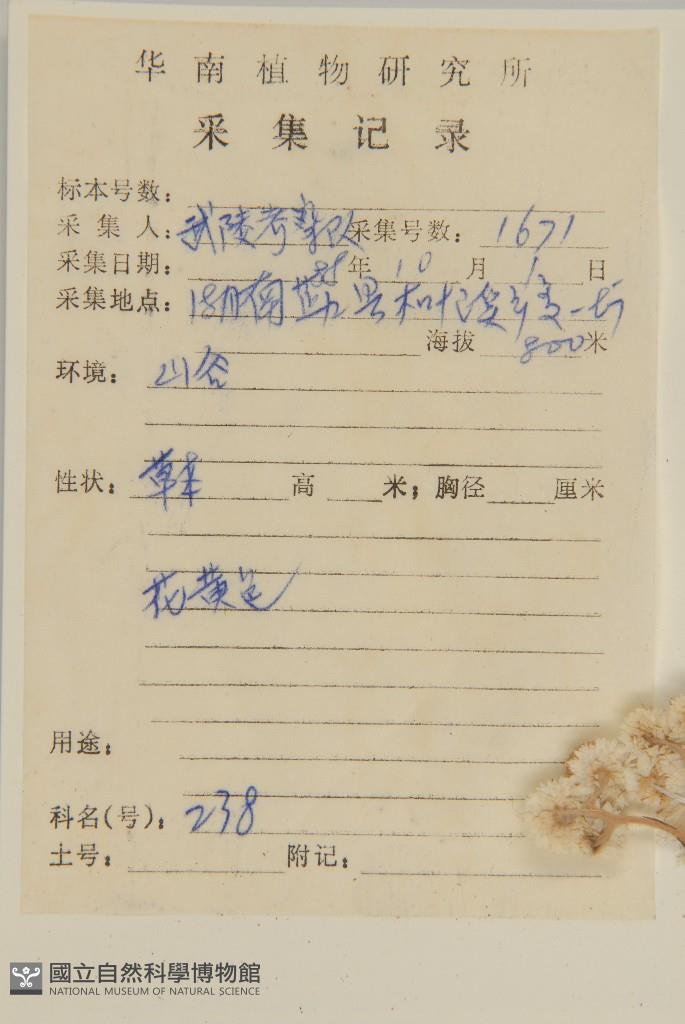 华南植物研究所
采集记录
标本号数：
采集人：武陵考察队 采集号数：1671
采集日期：88年10月1日
采集地点：湖南 县
海拔800米
环境：山谷
性状：草本 高 米；胸径 厘米
花黄色
用途：
科名(号)：238
土号： 附记：
國立自然科學博物館
NATIONAL MUSEUM OF NATURAL SCIENCE